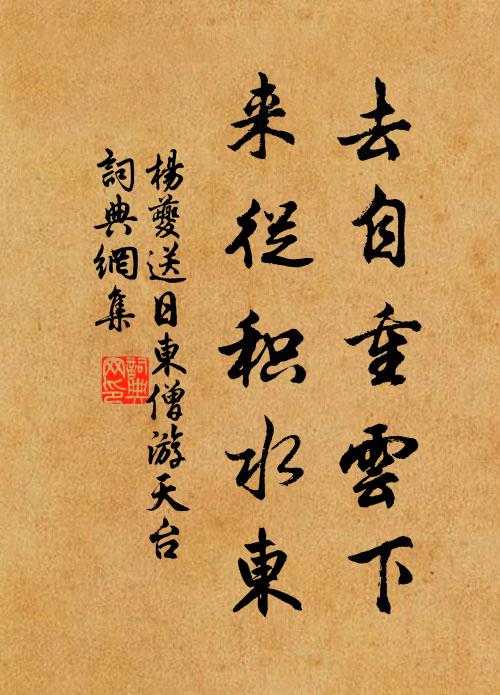 去自重雲下
来從积水東
楊夔送日東僧游天台
詞典網集
詞典网印